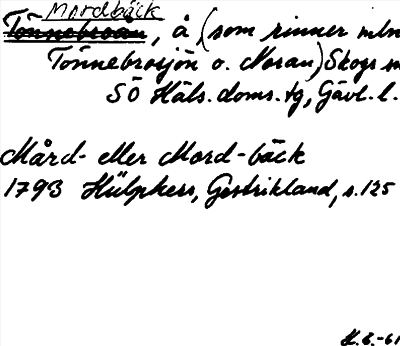 Mordbäck
Tönnebroån, å (som rinner mln
Tönnebrosjön o. Noran) Skogs
SÖ Häls. doms. tg, Gävl. l.
Mård- eller Mord-bäck
1793 Hülphers, Gestrikland, s. 125